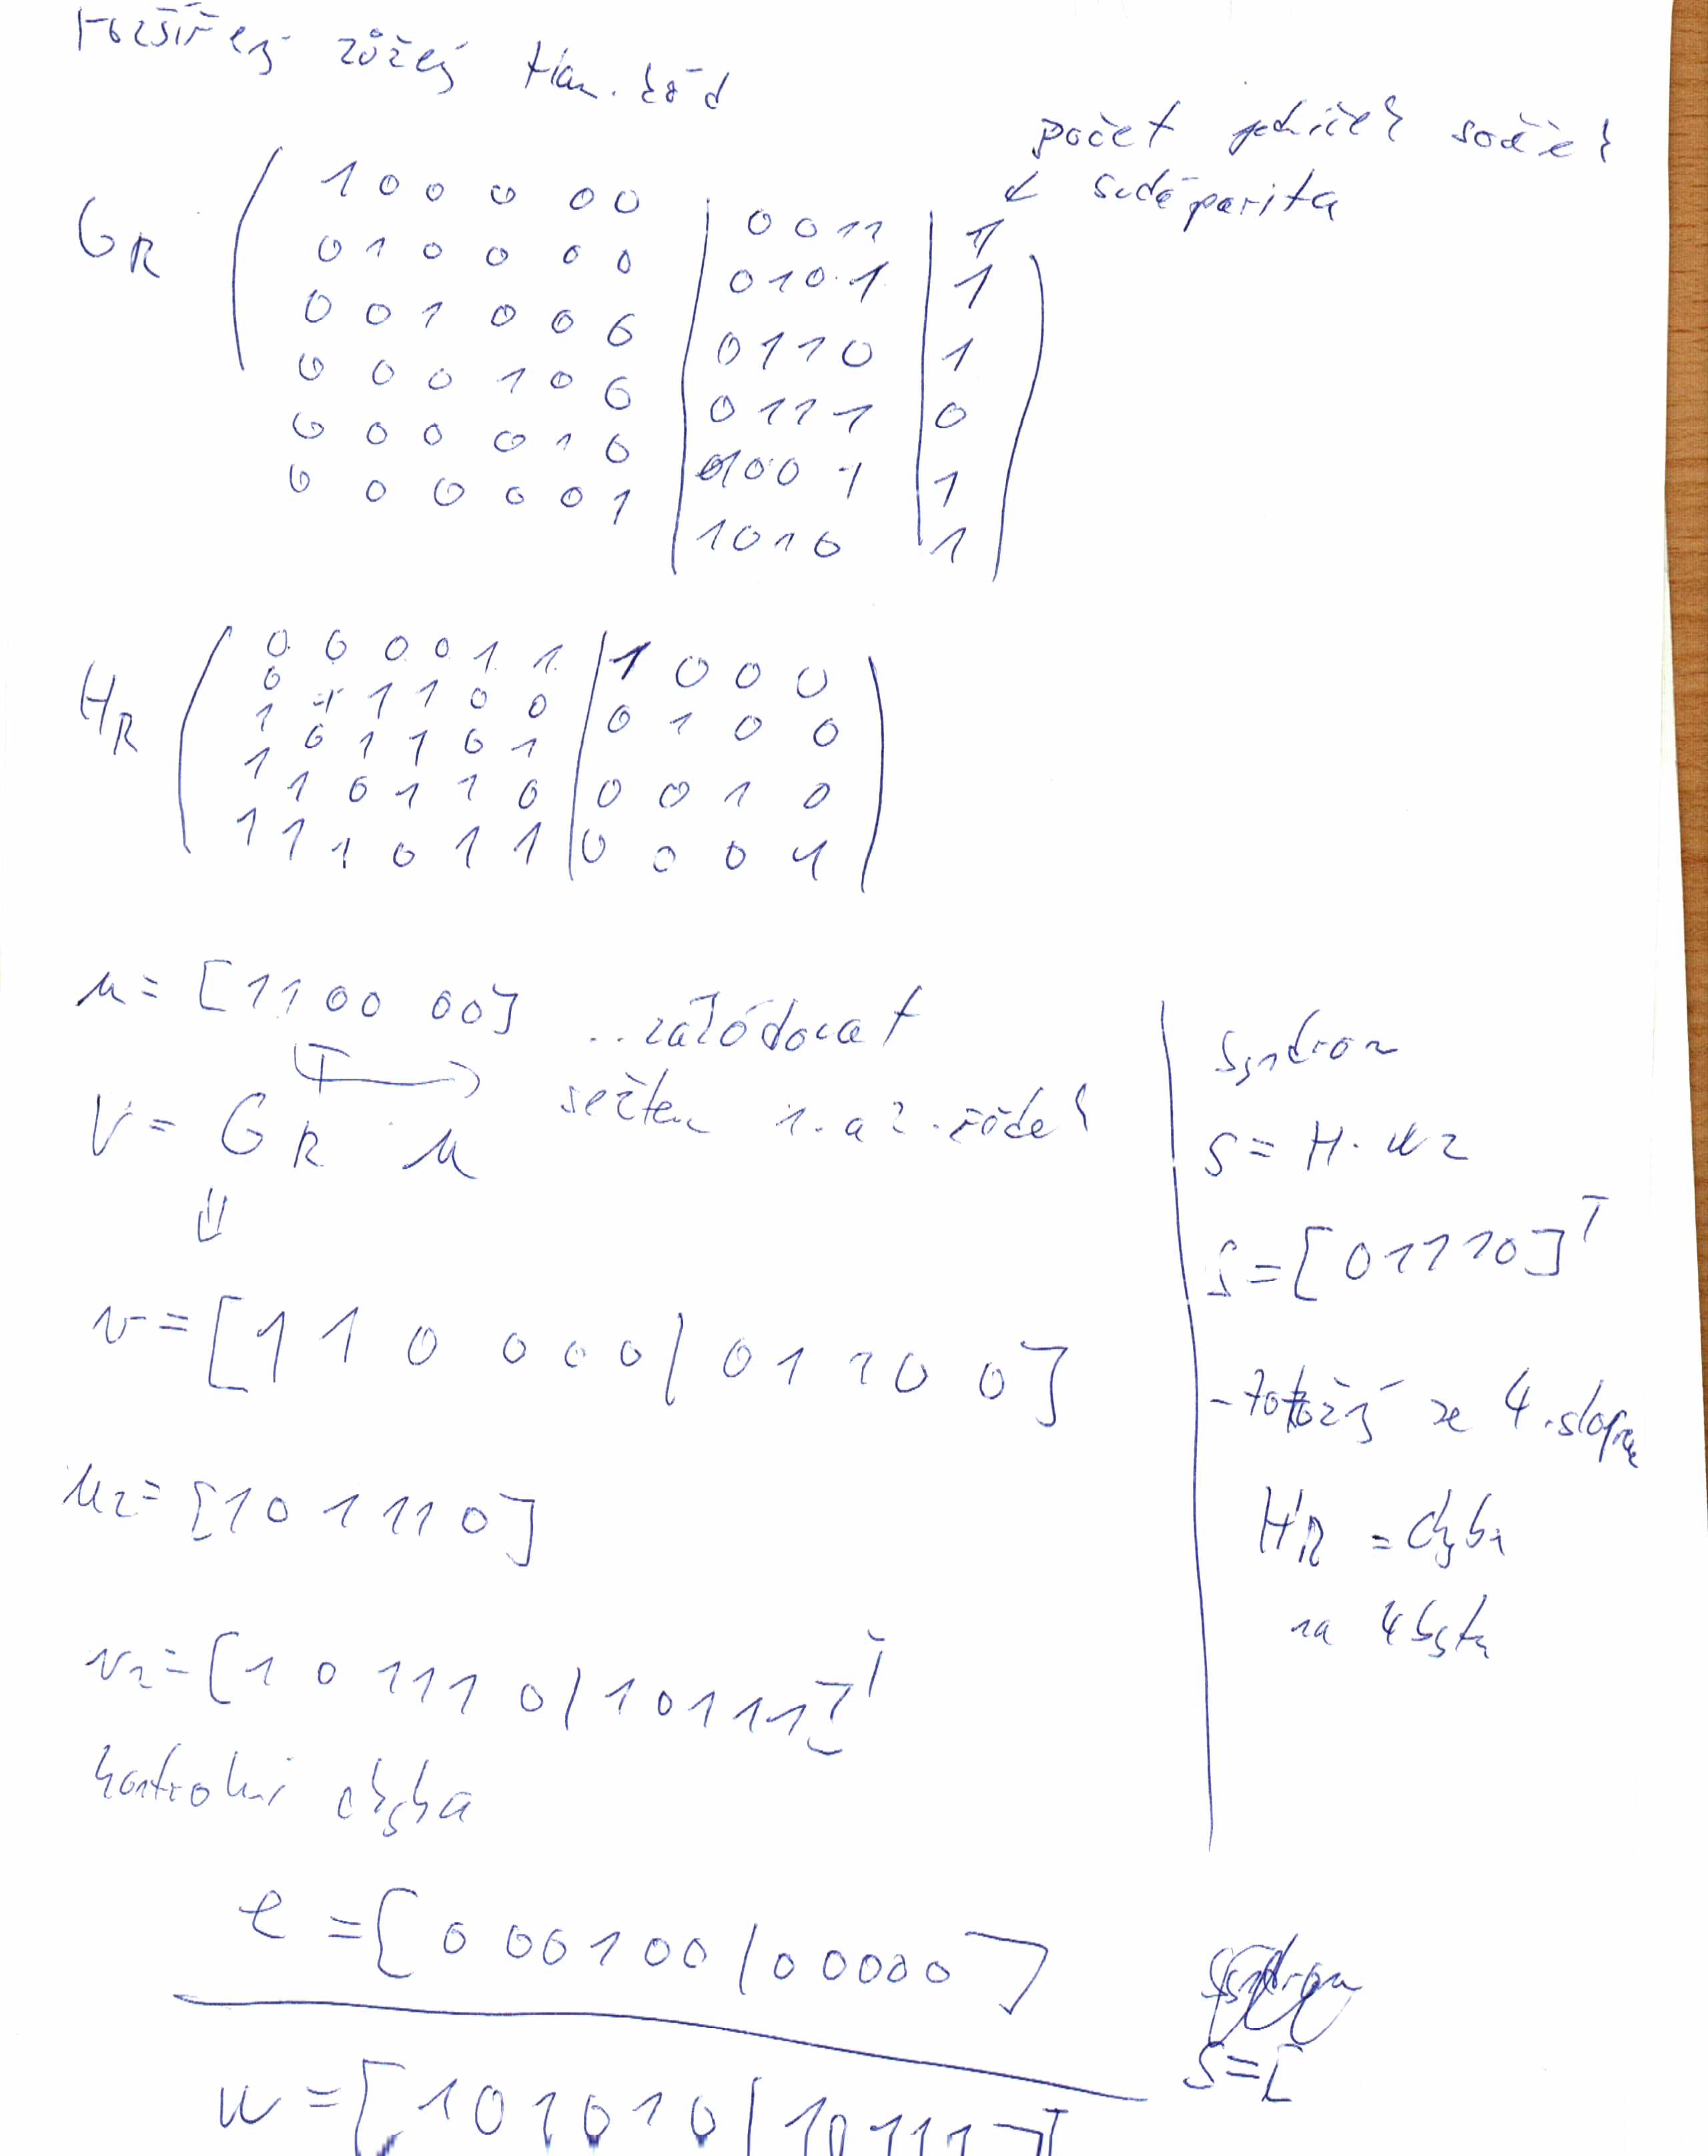 rozšířený zúžený Ham. kód
počet jedniček soudček
sudá parita
G_R
1 0 0 0 0 0 | 0 0 1 1 | 1
0 1 0 0 0 0 | 0 1 0 1 | 1
0 0 1 0 0 0 | 0 1 1 0 | 1
0 0 0 1 0 0 | 0 1 1 1 | 0
0 0 0 0 1 0 | 1 0 0 1 | 1
0 0 0 0 0 1 | 1 0 1 0 | 1
H_R
0 0 0 0 1 1 | 1 0 0 0
0 1 1 1 0 0 | 0 1 0 0
1 0 1 1 0 1 | 0 0 1 0
1 1 0 1 1 0 | 0 0 0 1
1 1 1 0 1 1
u = [1100 00] ..zakódovat
V = G_R^T · u sečtem 1. a 2. řádek
⇓
v = [1 1 0 0 0 0 | 0 1 1 0 0]
u2 = [10 1 11 0]
v2 = [1 0 111 0 | 10111]^T
kontrolní chyba
e = [0 00100 | 00000]
w = [101010 | 10111]^T
Syndrom
S = H · w2
S = [01110]^T
- totožný se 4. sloupcem
H_R = chyba
na 4 bytu
S = [